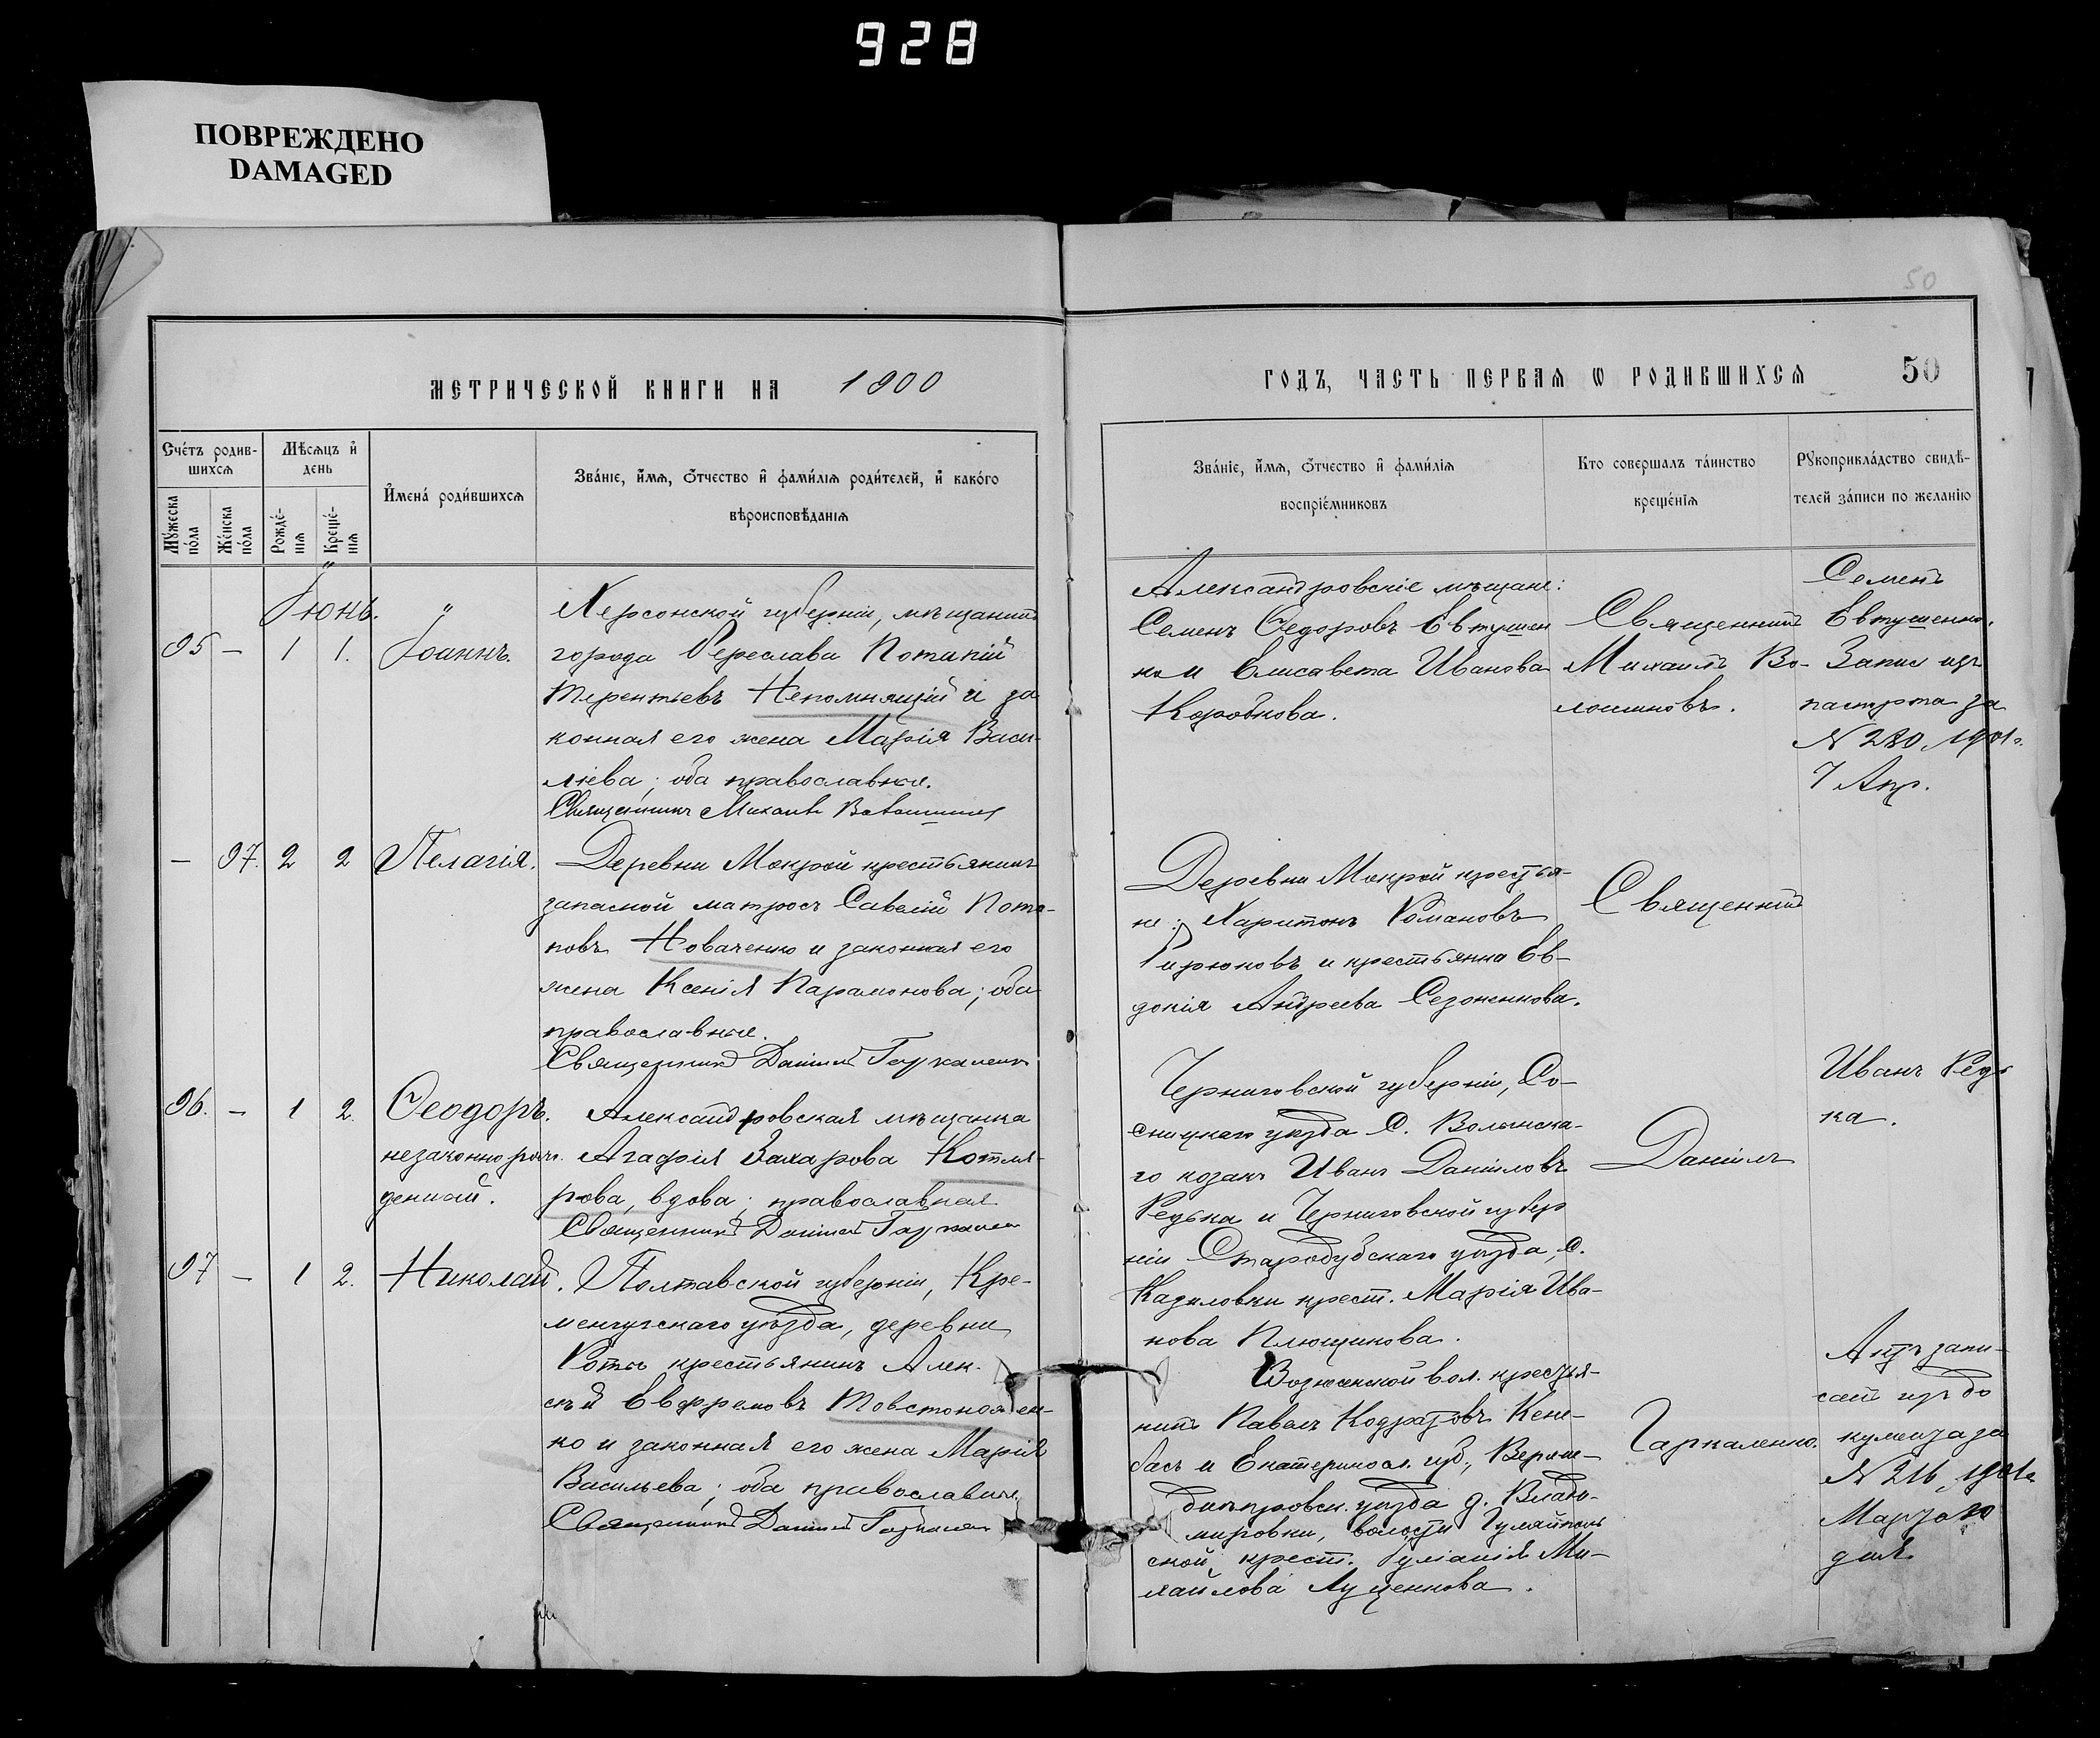 928
ПОВРЕЖДЕНО
DAMAGED
50
МЕТРИЧЕСКОЙ КНИГИ НА 1900
ГОДЪ, ЧАСТЬ ПЕРВАЯ Ѡ РОДИВШИХСЯ 50
Счетъ родив-
шихся
Мужеска пола
Женска пола
Мѣсяцъ и
день
Рожде-
нія
Креще-
нія
Имена родившихся
Званіе, имя, отчество и фамилія родителей, и какого
вѣроисповѣданія
Званіе, имя, отчество и фамилія
воспріемниковъ
Кто совершалъ таинство
крещенія
Рукоприкладство свидѣ-
телей записи по желанію
Іюнь.
95 – 1 1. Іоаннъ.
Херсонской губерніи, мѣщанинъ
города Береслава Потапій
Терентьевъ Непомнящій и за
конная его жена Марія Васи-
льева; оба православные.
Священникъ Михаилъ Волошинов
Александровскіе мѣщане:
Семенъ Ѳедоровъ Евтушен
ко и Елисавета Иванова
Коробкова.
Священникъ
Михаилъ Во-
лошиновъ.
Семенъ
Евтушенко.
N 280 1901г.
7 Апр.
– 97. 2 2 Пелагія.
Деревни Мокрой крестьянинъ
запасной матросъ Савелій Пота-
повъ Новаченко и законная его
жена Ксенія Парамонова; оба
православные.
Священникъ Даніилъ Гаркаленко
Деревни Мокрой крестья-
не: Харитонъ Романовъ
Бирюковъ и крестьянка Ев-
докія Андреева Сезоненкова.
Священникъ
96. – 1 2. Ѳеодоръ.
незаконнорож-
денный.
Александровская мѣщанка
Агафія Захарова Котля-
рова, вдова; православная
Священникъ Даніилъ Гаркаленко
Черниговской губерніи, Со-
сницкаго уѣзда С. Волынска-
го козакъ Иванъ Даніиловъ
Редька и Черниговской губер
ніи Стародубскаго уѣзда, С.
Казиловки крест. Марія Ива-
нова Плющикова.
Даніилъ
Иванъ Редь
ка.
97 – 1 2. Николай.
Полтавской губерніи, Кре-
менчугскаго уѣзда, деревни
крестьянинъ Алек-
сѣй Евфремовъ Товстоноженко
ко и законная его жена Марія
Васильева; оба православные.
Священникъ Даніилъ Гаркаленко
Вознесенской вол. крестья-
нинъ Павелъ Кодратовъ Кени-
басъ и Екатериносл. губ., Верхне-
днѣпровск. уѣзда д. Влади-
мировки, волости Гуляйполь
ской крест. Іуліанія Ми-
хайлова Луценкова.
Гаркаленко.
Актъ запи-
санъ изъ до
кумента за
N 216, 1901г.
Марта 20
дня.